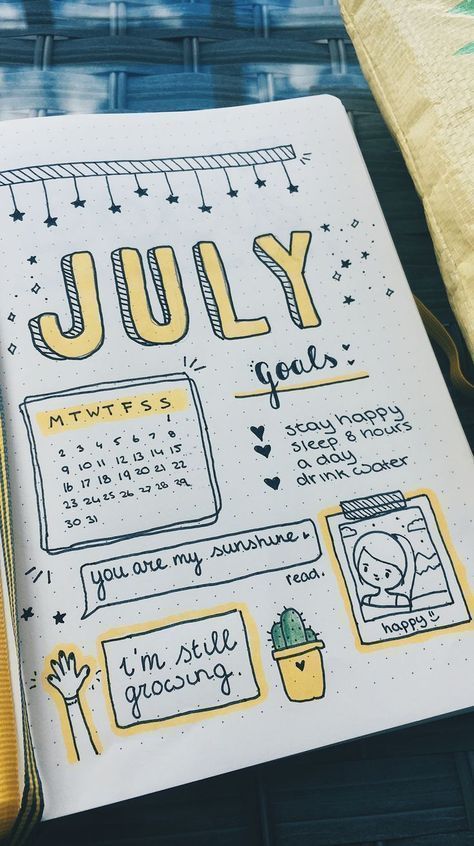 JULY
goals
M.T.W.T.F.S.S
1
2 3 4 5 6 7 8
9 10 11 12 13 14 15
16 17 18 19 20 21 22
23 24 25 26 27 28 29
30 31
stay happy
sleep 8 hours
a day
drink water
you are my sunshine
read.
happy
i'm still
growing.